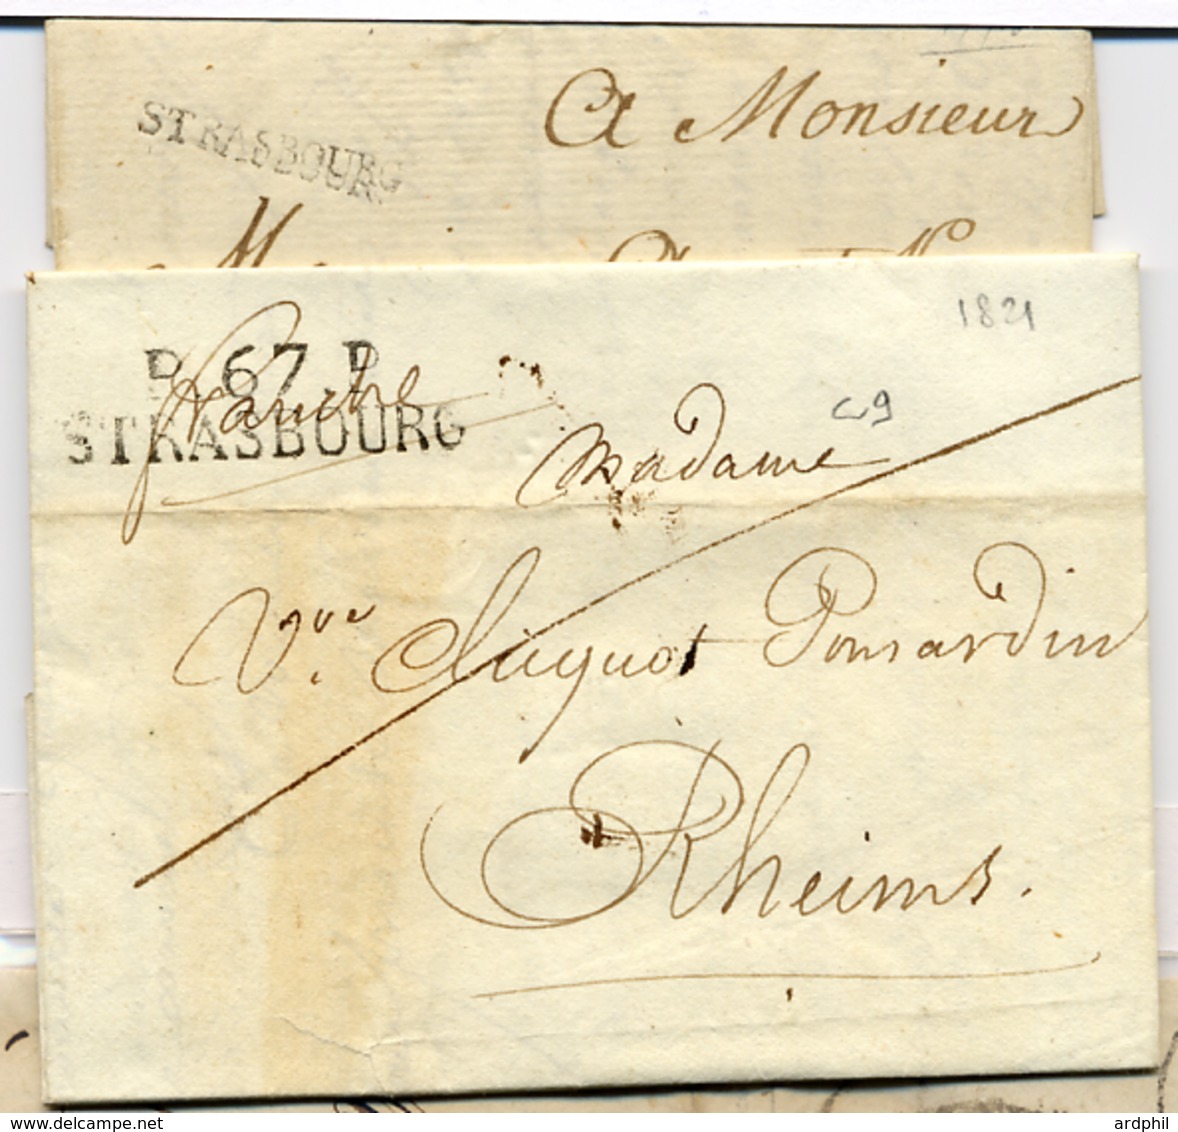 STRASBOURG
A Monsieur
1821
P.67.P
STRASBOURG
franche
C 9
Madame
Vve. Cliquot Ponsardin
Rheims.
delcampe.net
ardphil